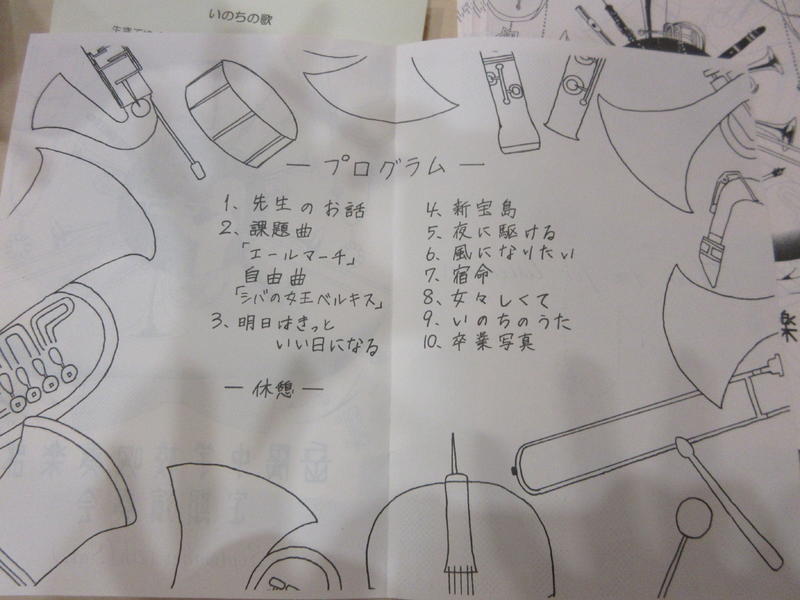 いのちの歌
ープログラムー
1、先生のお話
2、課題曲
「エールマーチ」
自由曲
「シバの女王ベルキス」
3、明日はきっと
いい日になる
ー休憩ー
4、新宝島
5、夜に駆ける
6、風になりたい
7、宿命
8、女々しくて
9、いのちのうた
10、卒業写真
楽